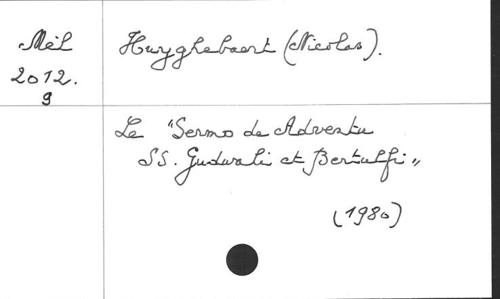 Mél
2012.
9
Huyghebaert (Nicolas).
Le "Sermo de Adventu
SS. Gudwali et Bertulfi"
(1980)